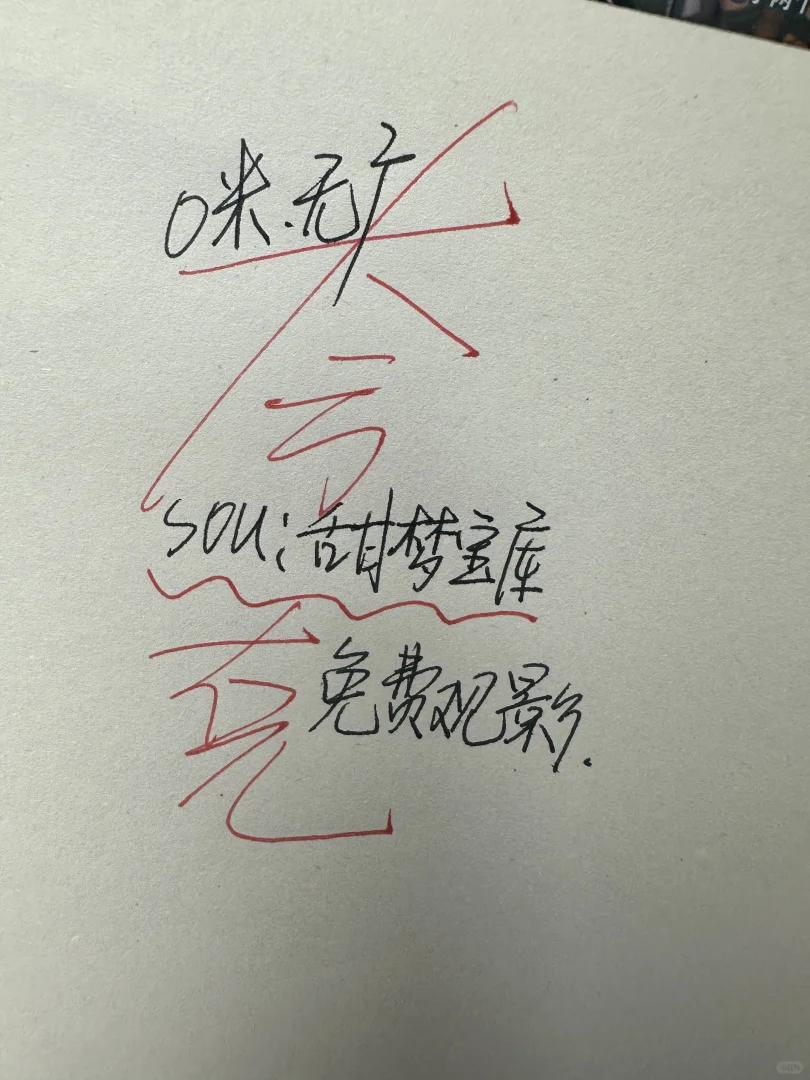 咪.无广
夸
sou:甜梦宝库
克
免费观影.